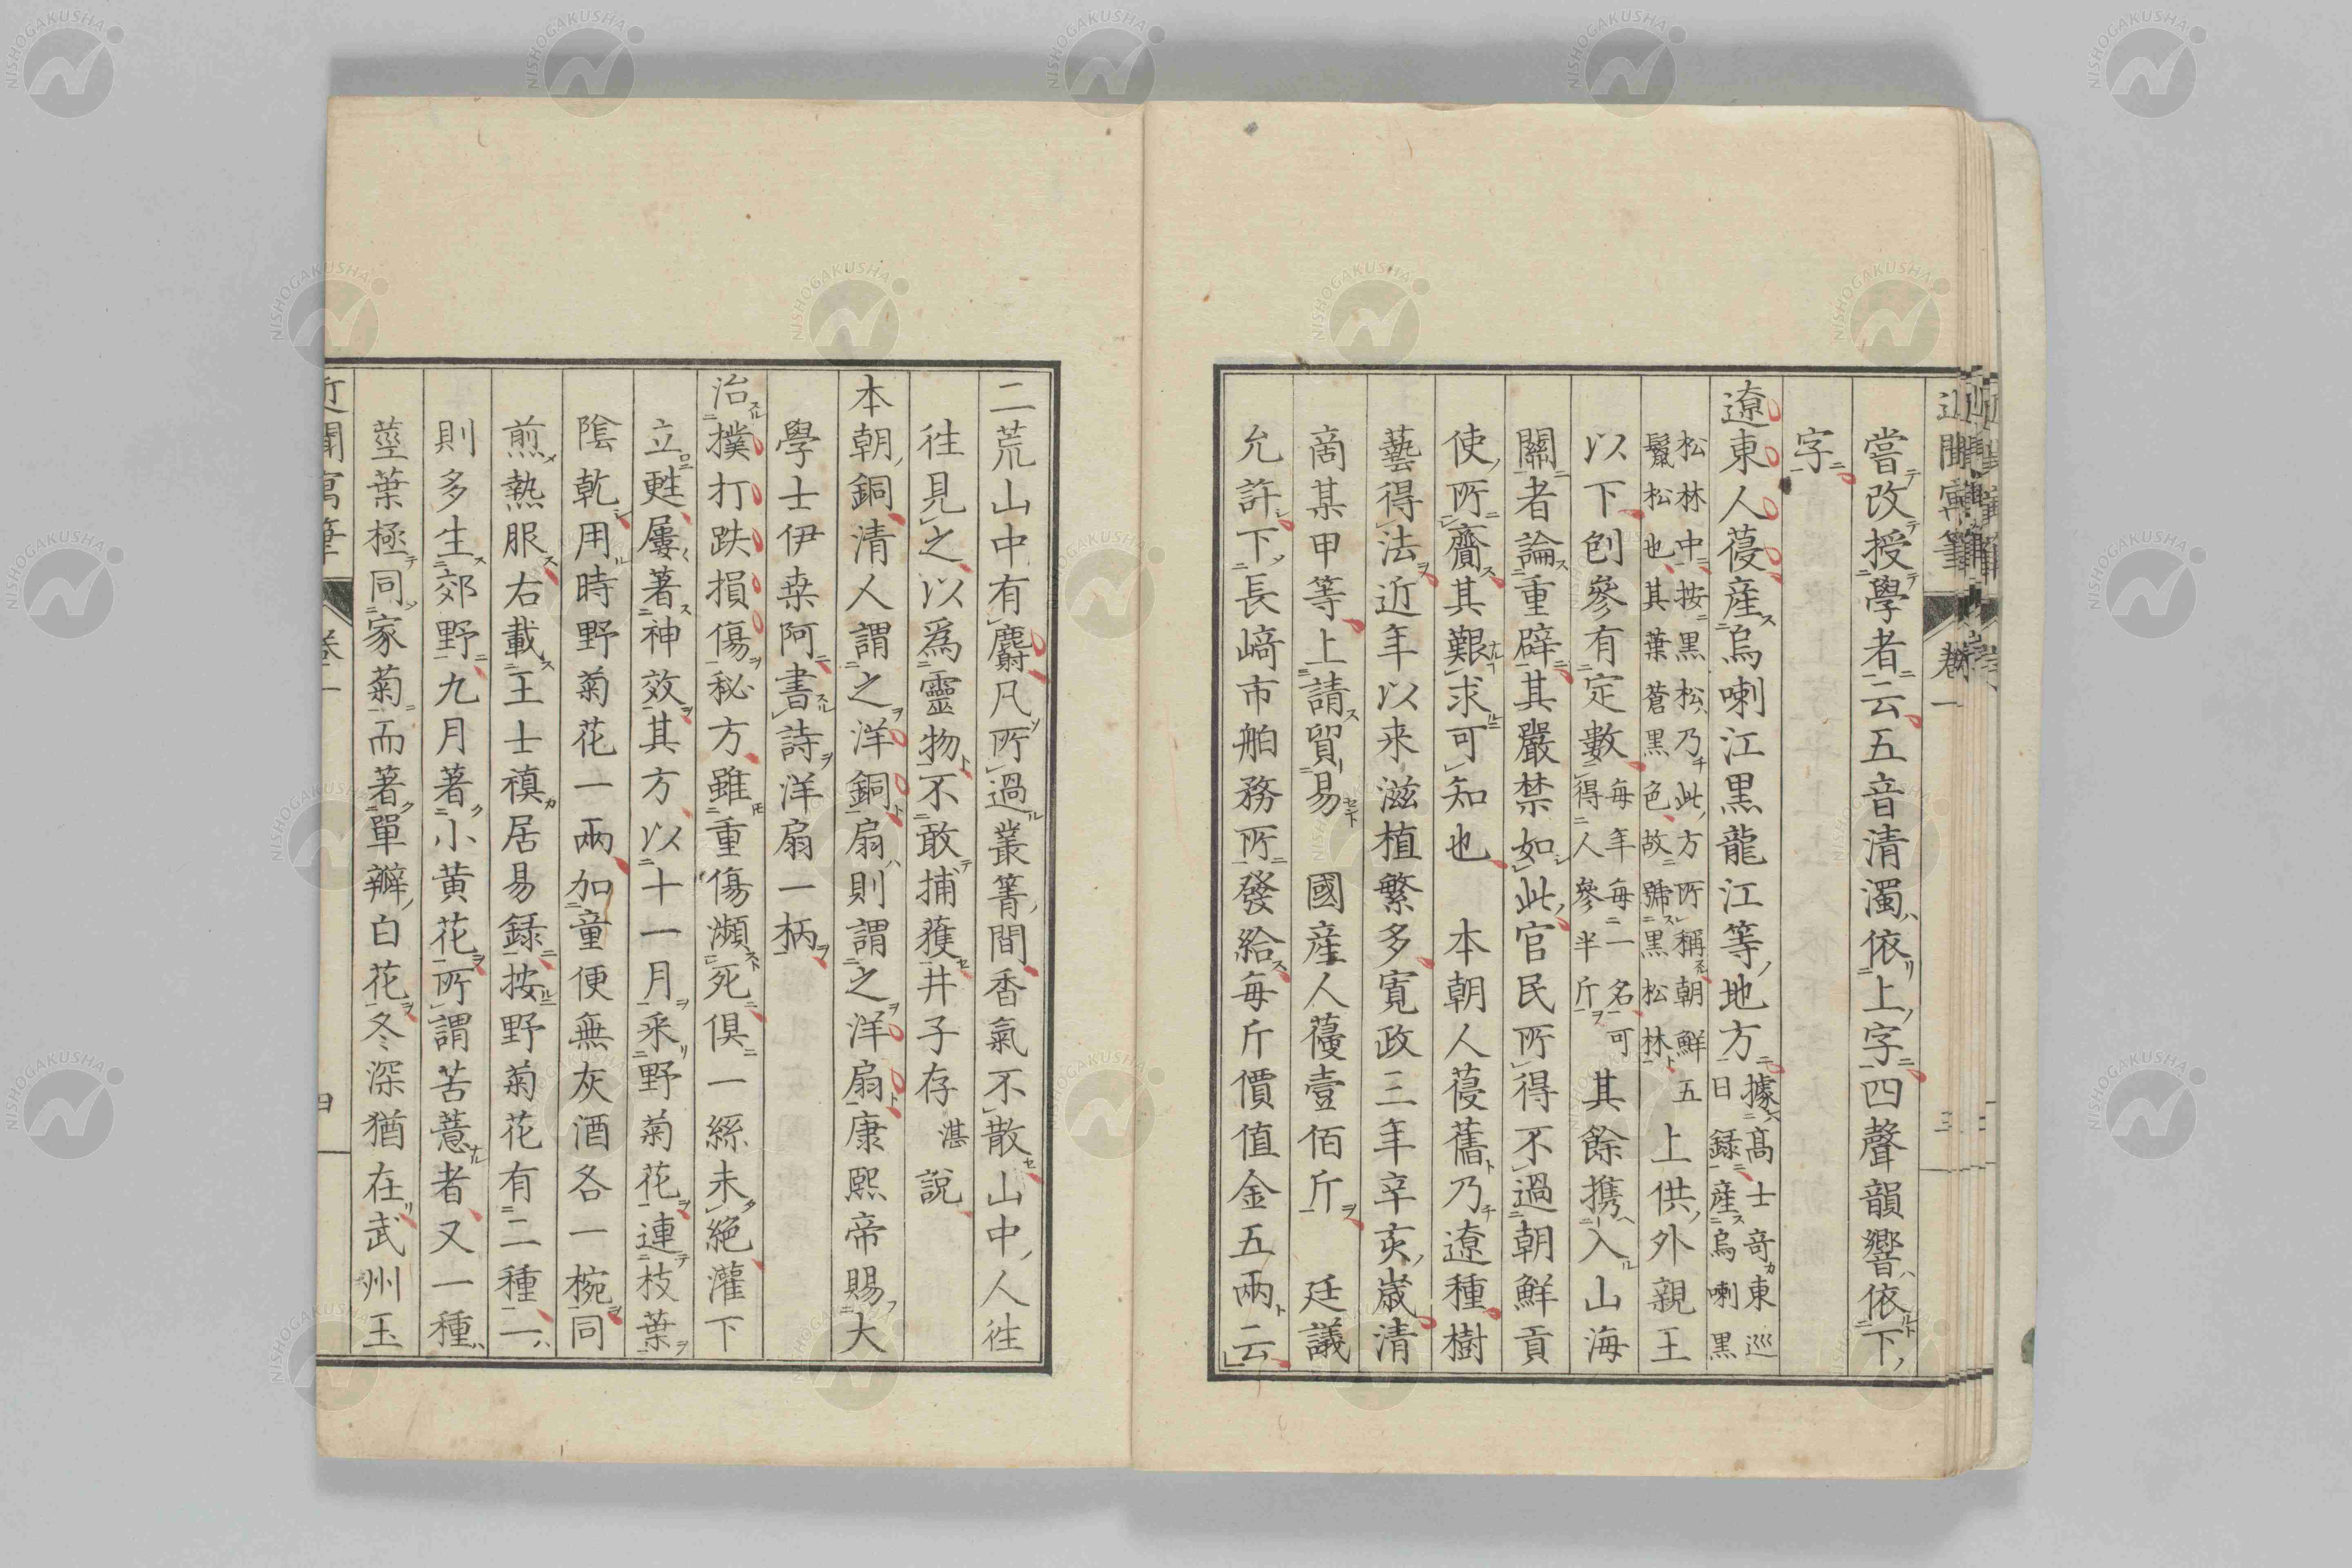 近聞寓筆 卷一 三
嘗改授學者云五音清濁依上字四聲韻響依下
字
遼東人葠産烏喇江黒龍江等地方據髙士竒東巡日録産烏喇黒
松林中按黒松乃此方所稱朝鮮五鬣松也其葉蒼黒色故號黒松林上供外親王
以下刨參有定數毎年毎一名可得人參半斤其餘攜入山海
關者論重辟其嚴禁如此官民所得不過朝鮮貢
使所齎其艱求可知也 本朝人葠舊乃遼種樹
藝得法近年以来滋植繁多寛政三年辛亥歳清
啇某甲等上請貿易 國産人葠壹佰斤 廷議
允許下長﨑市舶務所發給毎斤價值金五兩云
二荒山中有麝凡所過叢箐間香氣不散山中人往
往見之以爲靈物不敢捕獲井子存湛說
本朝銅清人謂之洋銅扇則謂之洋扇康熙帝賜大
學士伊桒阿書詩洋扇一柄
治撲打跌損傷秘方雖重傷瀕死倶一絲未絕灌下
立甦屢著神效其方以十一月采野菊花連枝葉
陰乾用時野菊花一兩加童便無灰酒各一椀同
煎熱服右載王士禛居易録按野菊花有二種一
則多生郊野九月著小黄花所謂苦薏者又一種
莖葉極同家菊而著單瓣白花冬深猶在武州玉
近聞寓筆 卷一 四
NISHOGAKUSHA